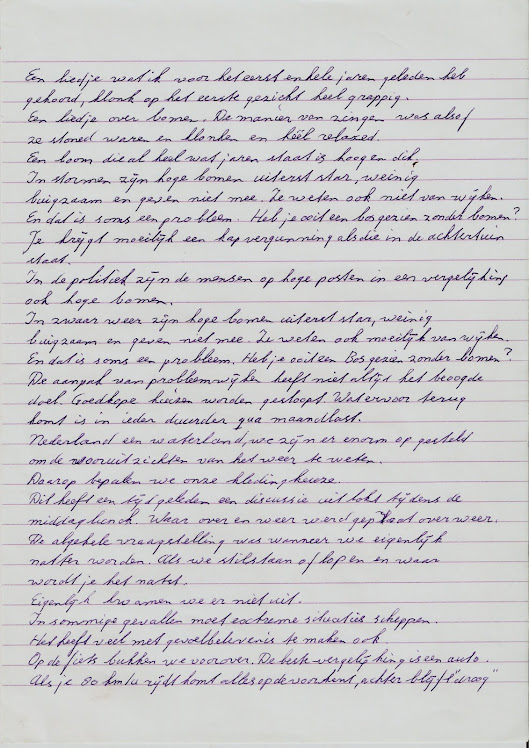 Een liedje wat ik voor het eerst enkele jaren geleden heb
gehoord, klonk op het eerste gezicht heel grappig.
Een liedje over bomen. De manier van zingen was alsof
ze stoned waren en klonken en héél relaxed.
Een boom die al heel wat jaren staat is hoog en dik,
In stormen zijn hoge bomen uiterst star, weinig
buigzaam en geven niet mee. Ze weten ook niet van wijken.
En dat is soms een probleem. Heb je ooit een bos gezien zonder bomen?
Je krijgt moeilijk een kapvergunning als die in de achtertuin
staat.
In de politiek zijn de mensen op hoge posten in een vergelijking
ook hoge bomen.
In zwaar weer zijn hoge bomen uiterst star, weinig
buigzaam en geven niet mee. Ze weten ook moeilijk van wijken.
En dat is soms een probleem. Heb je ooit een Bos gezien zonder bomen?
De aanpak van probleemwijken heeft niet altijd het beoogde
doel. Goedkope huizen worden gesloopt. Wat ervoor terug
komt is in ieder duurder qua maandlast.
Nederland een waterland, we zijn er enorm op gesteld
om de vooruitzichten van het weer te weten.
Daarop bepalen we onze kleding keuze.
Dit heeft een tijd geleden een discussie uit lokt tijdens de
middaglunch. Waar over en weer werd gepraat over weer.
De algehele vraagstelling was wanneer we eigenlijk
natter worden. Als we stilstaan of lopen en waar
wordt je het natst.
Eigenlijk kwamen we er niet uit.
In sommige gevallen moet extreme situaties scheppen.
Het heeft veel met gevoelbelevenis te maken ook
Op de fiets bukken we voorover. De beste vergelijking is een auto.
Als je 80 km/u rijdt komt alles op de voorkant, achter blijft "droog"